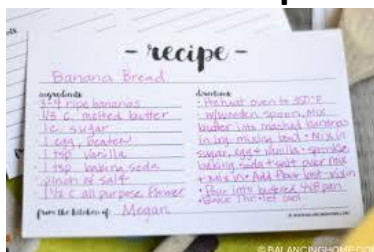 - recipe -
Banana Bread
ingredients
3-4 ripe bananas
1/3 c. melted butter
1 c. sugar
1 egg, beaten
1 tsp vanilla
1 tsp baking soda
pinch of salt
1 1/2 c all purpose flower
from the kitchen of Megan
directions
• Preheat oven to 350°F
• w/wooden spoon, mix
butter into mashed bananas
in lrg. mixing bowl • Mix in
sugar, egg + vanilla • sprinkle
baking soda + salt over mix
+ mix in • Add flour last + mix
• Pour into buttered 4x8 pan
• Bake 1 hr • let cool
© BALANCINGHOME.COM